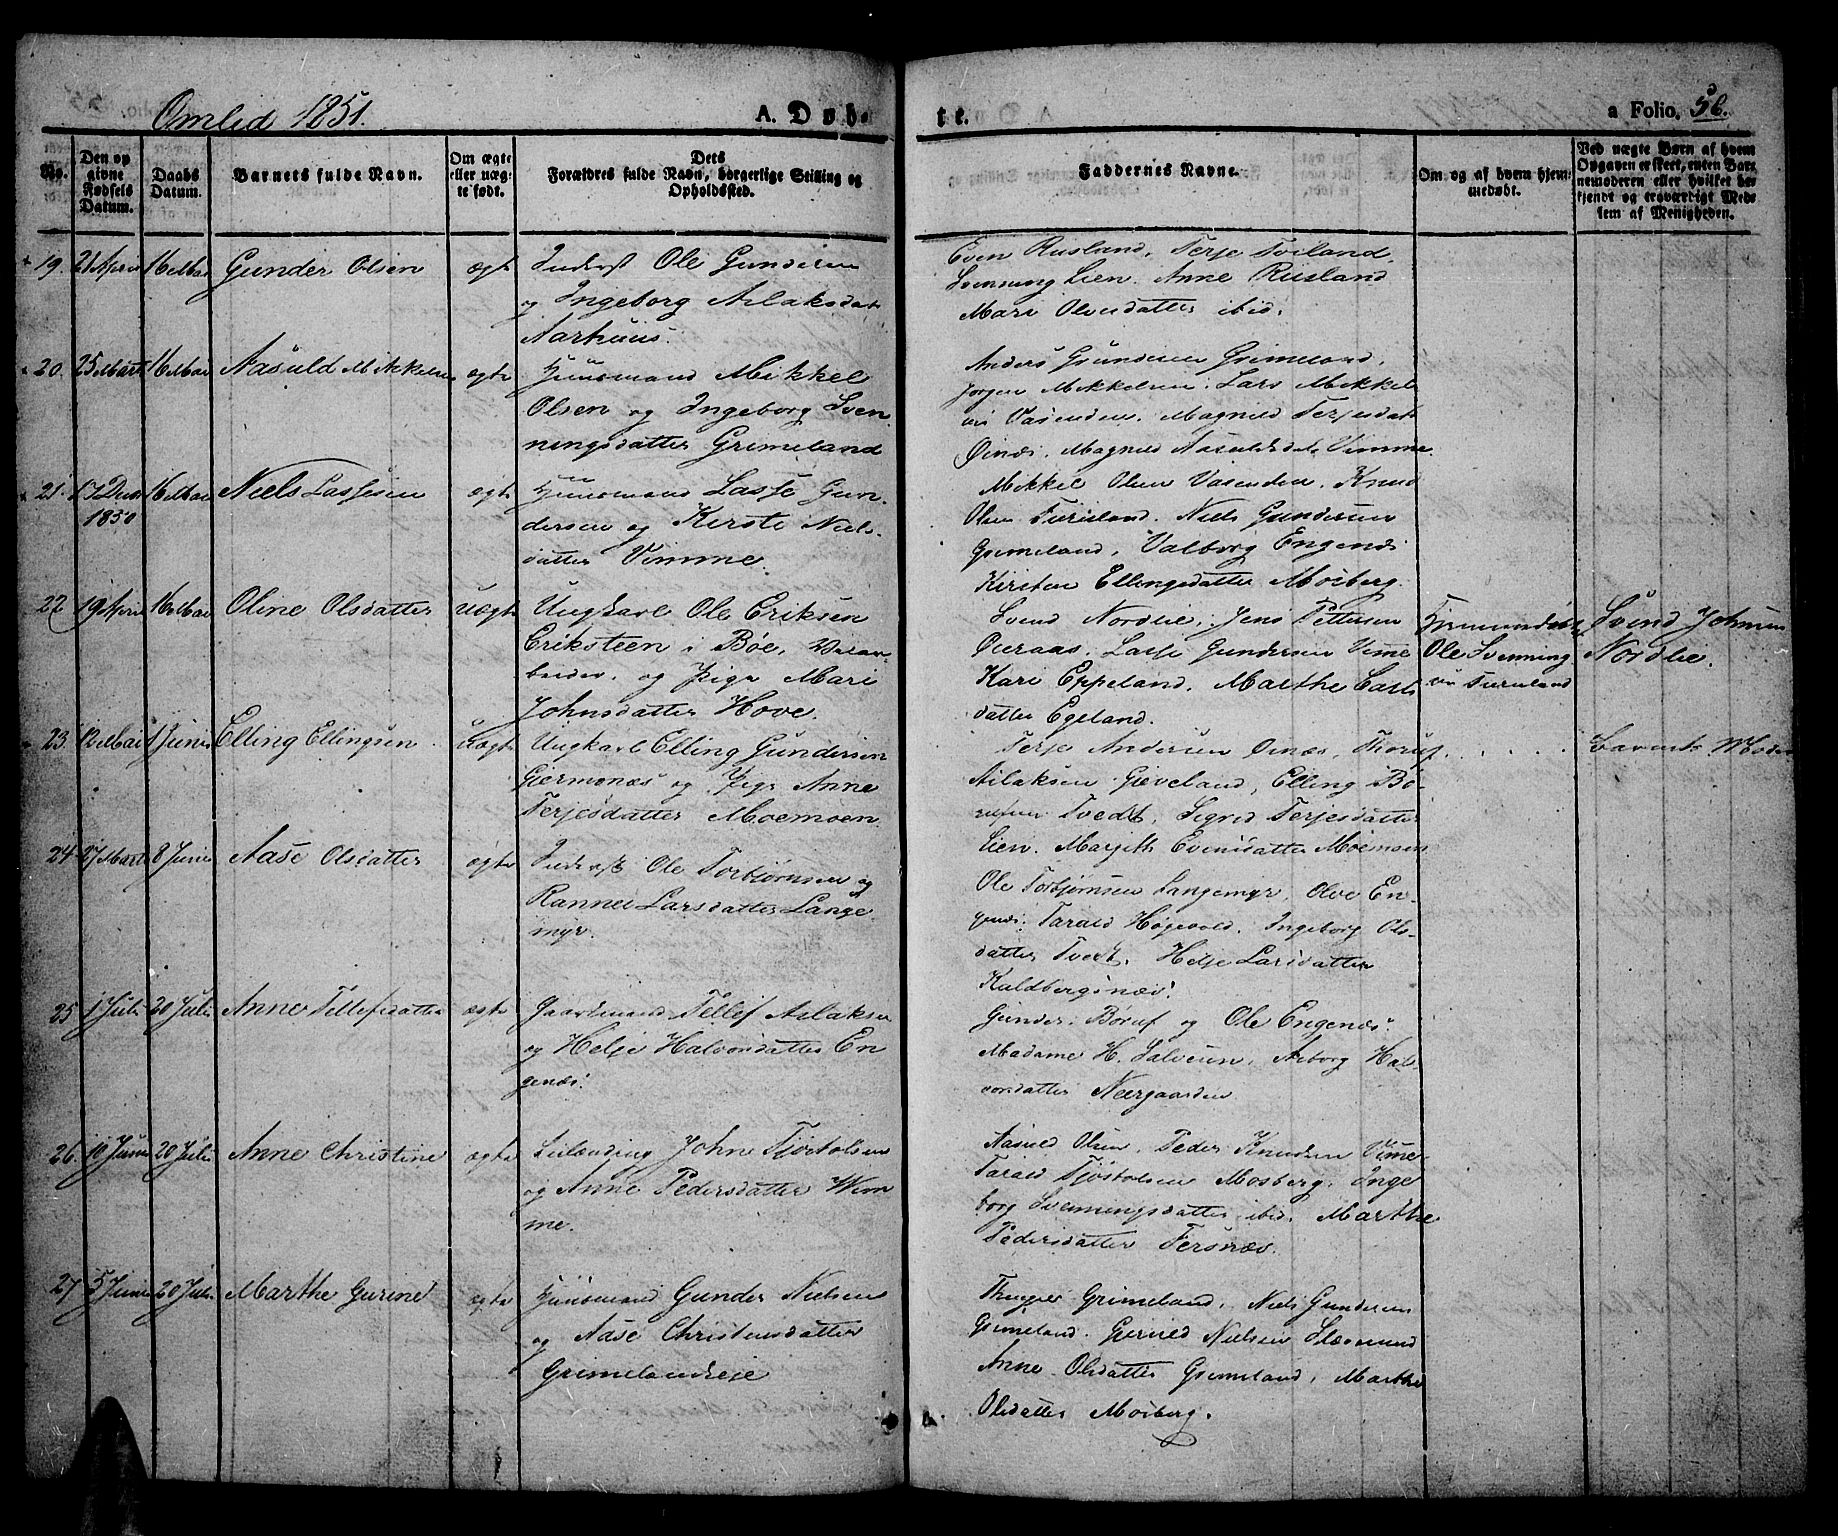 Omlid 1851.
A. Døbte.
a Folio. 56.
No.
Den opgivne Fødsels Datum.
Daabs Datum.
Barnets fulde Navn.
Om ægte eller uægte født.
Dets Forældres fulde Navn, borgerlige Stilling og Opholdssted.
Faddernes Navne.
Om og af hvem hjemmedøbt.
Ved uægte Børn af hvem Opgaven er skeet, enten Barnemoderen eller hvilket bekjendt og troværdigt Medlem af Menigheden.
19. 21 April 16 Mai Gunder Olsen ægte Inderst Ole Gundersen
og Ingeborg Aslaksdat
Aarhuus.
Even Rusland, Terje Tveland,
Svenning Lien. Anne Rusland
Mari Olvesdatter ibid.
20. 25 Mart 16 Mai Aasuld Mikkelsen ægte Huusmand Mikkel
Olsen og Ingeborg Sven
ningsdatter Grimeland
Anders Gundersen Grimeland,
Jørgen Mikkelsen. Lars Mikkel
sen Vasenden. Magnild Terjesdat
Øinæs. Magnild Aasuldsdat. Vimme
21. 17 Decbr 1850 16 Mai Niels Lassesen ægte Huusmand Lasse Gun
dersen og Kirste Niels-
datter Vimme.
Mikkel Olsen Vasenden. Knud
Olsen Tureland. Niels Gundersen
Grimeland, Valborg Engenæs
Kirsten Ellingsdatter Mosberg.
22 19 April 16 Mai Oline Olsdatter uægte Ungkarl Ole Eriksen
Eriksteen i Bøe,
og Pige Mari
Johnsdatter Hove.
Svend Nordlie, Jens Pettersen
Lasse Gundersen Vime
Kari Eppeland. Marthe Lars
datter Egeland.
Hjemmedøbt
Ole Svenning
sen Tureland
Svend Johnsen
Nordlie.
23. 12 Mai 1 Junii Elling Ellingsen uægte Ungkarl Elling Gundersen
Giermonæs og Pige Anne
Terjesdatter Moemoen.
Terje Andersen Øinæs, Thoruf
Aslaksen Gieveland, Elling
Tvedt. Sigrid Terjesdatter
Lien. Margith Evensdatter Moemoen
Barnets Moder
24 27 Mart 8 Junii Aase Olsdatter ægte Inderst Ole Torbjørnsen og
Rannei Larsdatter Lange
myr.
Ole Torbjørnsen Langemyr, Olve En-
genæs. Tarald Høgevold. Ingeborg Ols-
datter Tvedt. Helje Larsdatter
Kaldbergsnæs.
25 1 Juli 20 Juli Anne Tellefsdatter ægte Gaardmand Tellef Aslaksen
og Helje Halvorsdatter En
genæs.
Gunder Boruf og Ole Engenæs.
Madame H. Salvesen, Asborg Hal-
vorsdatter Neergaarden
26 10 Junii 20 Juli Anne Christine ægte Leilænding John Tjøstolsen
og Anne Pedersdatter Wim
me.
Aasuld Olsen, Peder Knudsen Vime
Tarald Tjøstolsen Mosberg. Inge
borg Svenningsdatter ibid. Marthe
Pedersdatter Fersnæs.
27 5 Junii 20 Juli Marthe Gurine ægte Huusmand Gunder Nielsen
og Aase Christensdatter
Grimelandseie
Grimeland. Niels Gundersen
Grimeland. Nielsen
Anne Olsdatter Grimeland, Marthe
Olsdatter Mosberg.